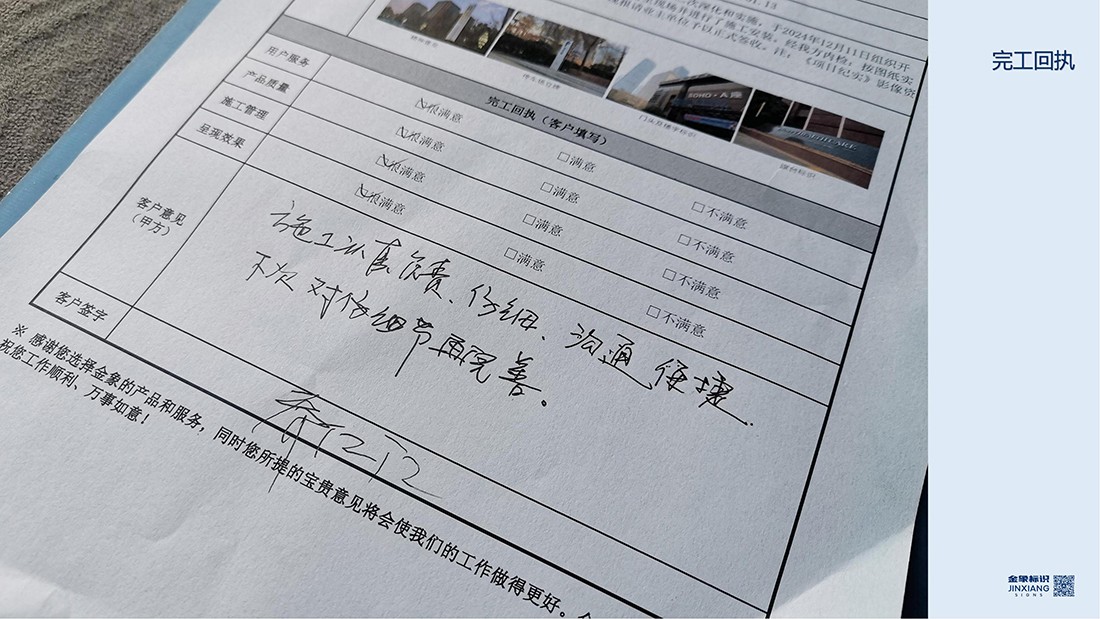 次深化和实施,于2024年12月11日组织开
现场并进行了施工安装,经我方内检,按图纸实
现报请业主单位予以正式签收。注,《项目纪实》影像资
SOHO
门头及楼宇标识
完工回执(客户填写)
用户服务 很满意 □满意 □不满意
产品质量 很满意 □满意 □不满意
施工管理 很满意 □满意 □不满意
呈现效果 很满意 □满意 □不满意
客户意见
(甲方)
施工认真负责、仔细、沟通便捷.
下次对仔细节再完善。
客户签字
※ 感谢您选择金象的产品和服务,同时您所提的宝贵意见将会使我们的工作做得更好。
祝您工作顺利、万事如意!
完工回执
金象标识
JINXIANG
SIGNS